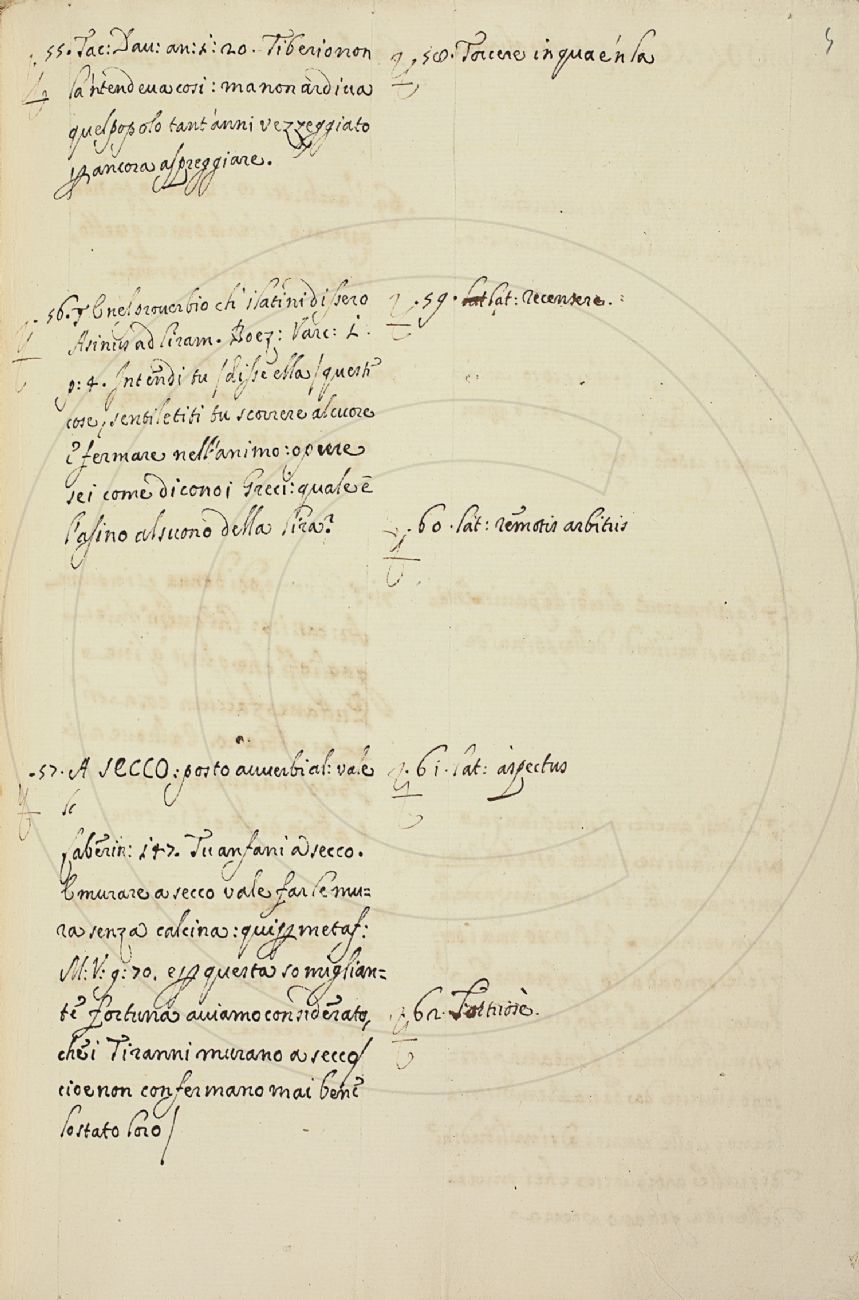 5
55. Tac: Dav: an: 1: 20. Tiberio non
la 'ntendeva cosi: ma non ardiva
quel popolo tant' anni vezzeggiato
per ancora aspreggiare.
56. E nel proverbio ch' i latini dissero
Asinus ad liram. Boez: Varc: L.
p: 4. Intendi tu /disse ella/ queste
cose, sentiletiti tu scorrere al cuore
e fermare nell'animo: o pure
sei come dicono i Greci: quale è
l'asino al suono della lira?
57. A SECCO: posto avverbial: vale
Laberin: 147. Tu anfani a secco.
E murare a secco vale far le mu=
ra senza calcina: qui per metaf:
M: V: 9: 70. e per questa somiglian=
te fortuna aviamo considerato,
che i Tiranni murano a secco/
cioe non confermano mai bene
lo stato loro/
58. Torcere in qua e 'n la
59. lat lat: recensere.
60. lat: remotis arbitris
61. lat: aspectus
62.